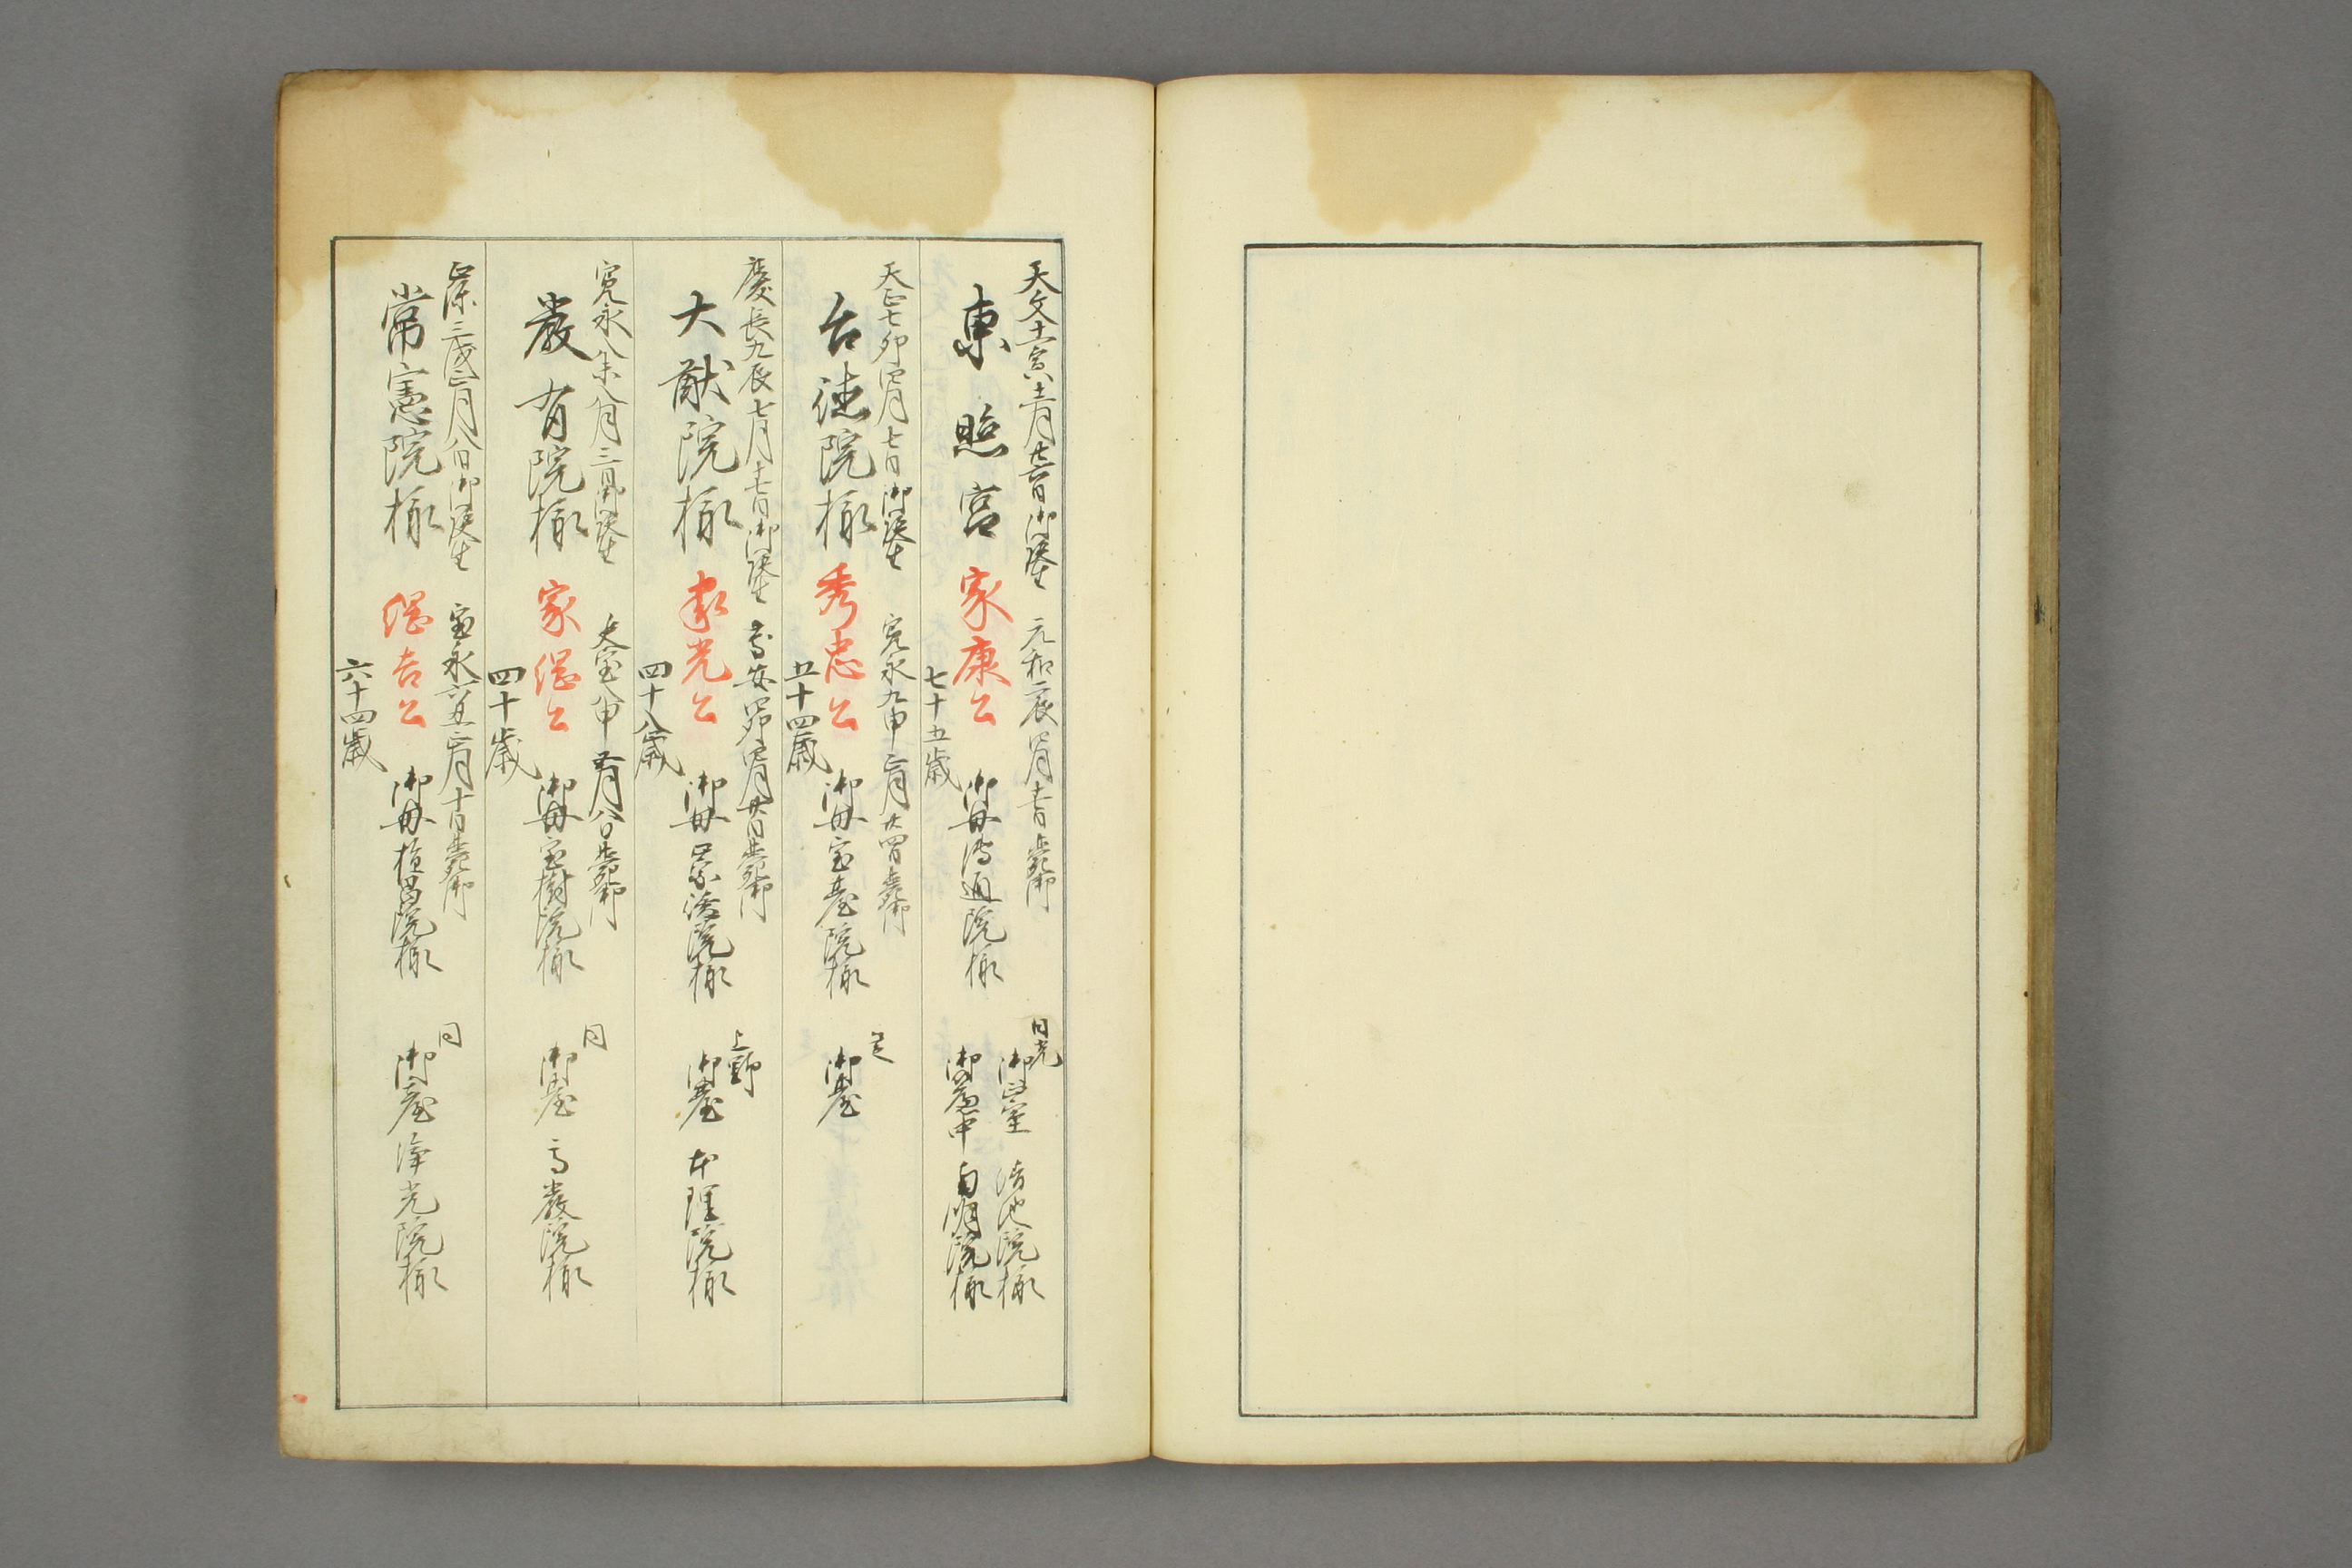 天文十一寅十二月廿六日御誕生 元和二辰四月十七日薨御
東照宮 家康公 御母傳通院様
七十五歳
日光
御簾中 清池院様
御簾中 南明院様
天正七卯四月七日御誕生 寛永九申正月廿四日薨御
台徳院様 秀忠公 御母宝臺院様 御臺
五十四歳
芝
慶長九辰七月十七日御誕生 慶安四卯四月廿日薨御
大猷院様 家光公 御母崇源院様 御臺 本理院様
四十八歳
上野
寛永八未八月三日御誕生 天宝八申五月八日薨御
嚴有院様 家綱公 御母宝樹院様 御臺 高嚴院様
四十歳
同
正保三戌正月八日御誕生 宝永六丑正月十日薨御
常憲院様 綱吉公 御母桂昌院様 御臺 浄光院様
六十四歳
同